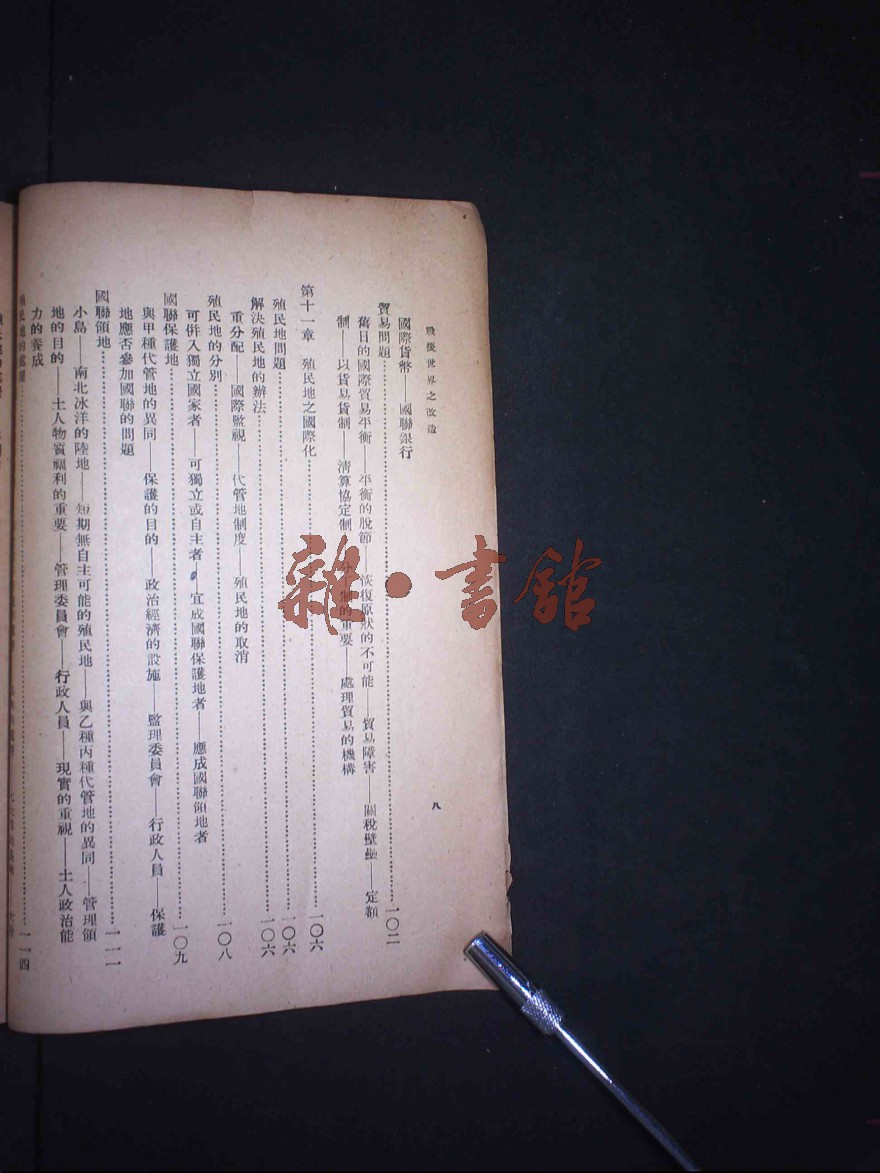 戰後世界之改造
八
國際貨幣——國聯銀行
貿易問題……一〇二
舊日的國際貿易平衡——平衡的脫節——恢復原狀的不可能——貿易障害——關稅壁壘——定額
制——以貨易貨制——清算協定制——分上制的重要——處理貿易的機構
第十一章 殖民地之國際化……一〇六
殖民地問題……一〇六
解決殖民地的辦法……一〇六
重分配——國際監視——代管地制度——殖民地的取消
殖民地的分別……一〇八
可併入獨立國家者——可獨立或自主者——宜成國聯保護地者——應成國聯領地者
國聯保護地……一〇九
與甲種代管地的異同——保護的目的——政治經濟的設施——監理委員會——行政人員——保護
地應否參加國聯的問題
國聯領地……一一一
小島——南北冰洋的陸地——短期無自主可能的殖民地——與乙種丙種代管地的異同——管理領
地的目的——土人物質福利的重要——管理委員會——行政人員——現實的重視——土人政治能
力的養成
殖民地的處置……一一四
雜·書館